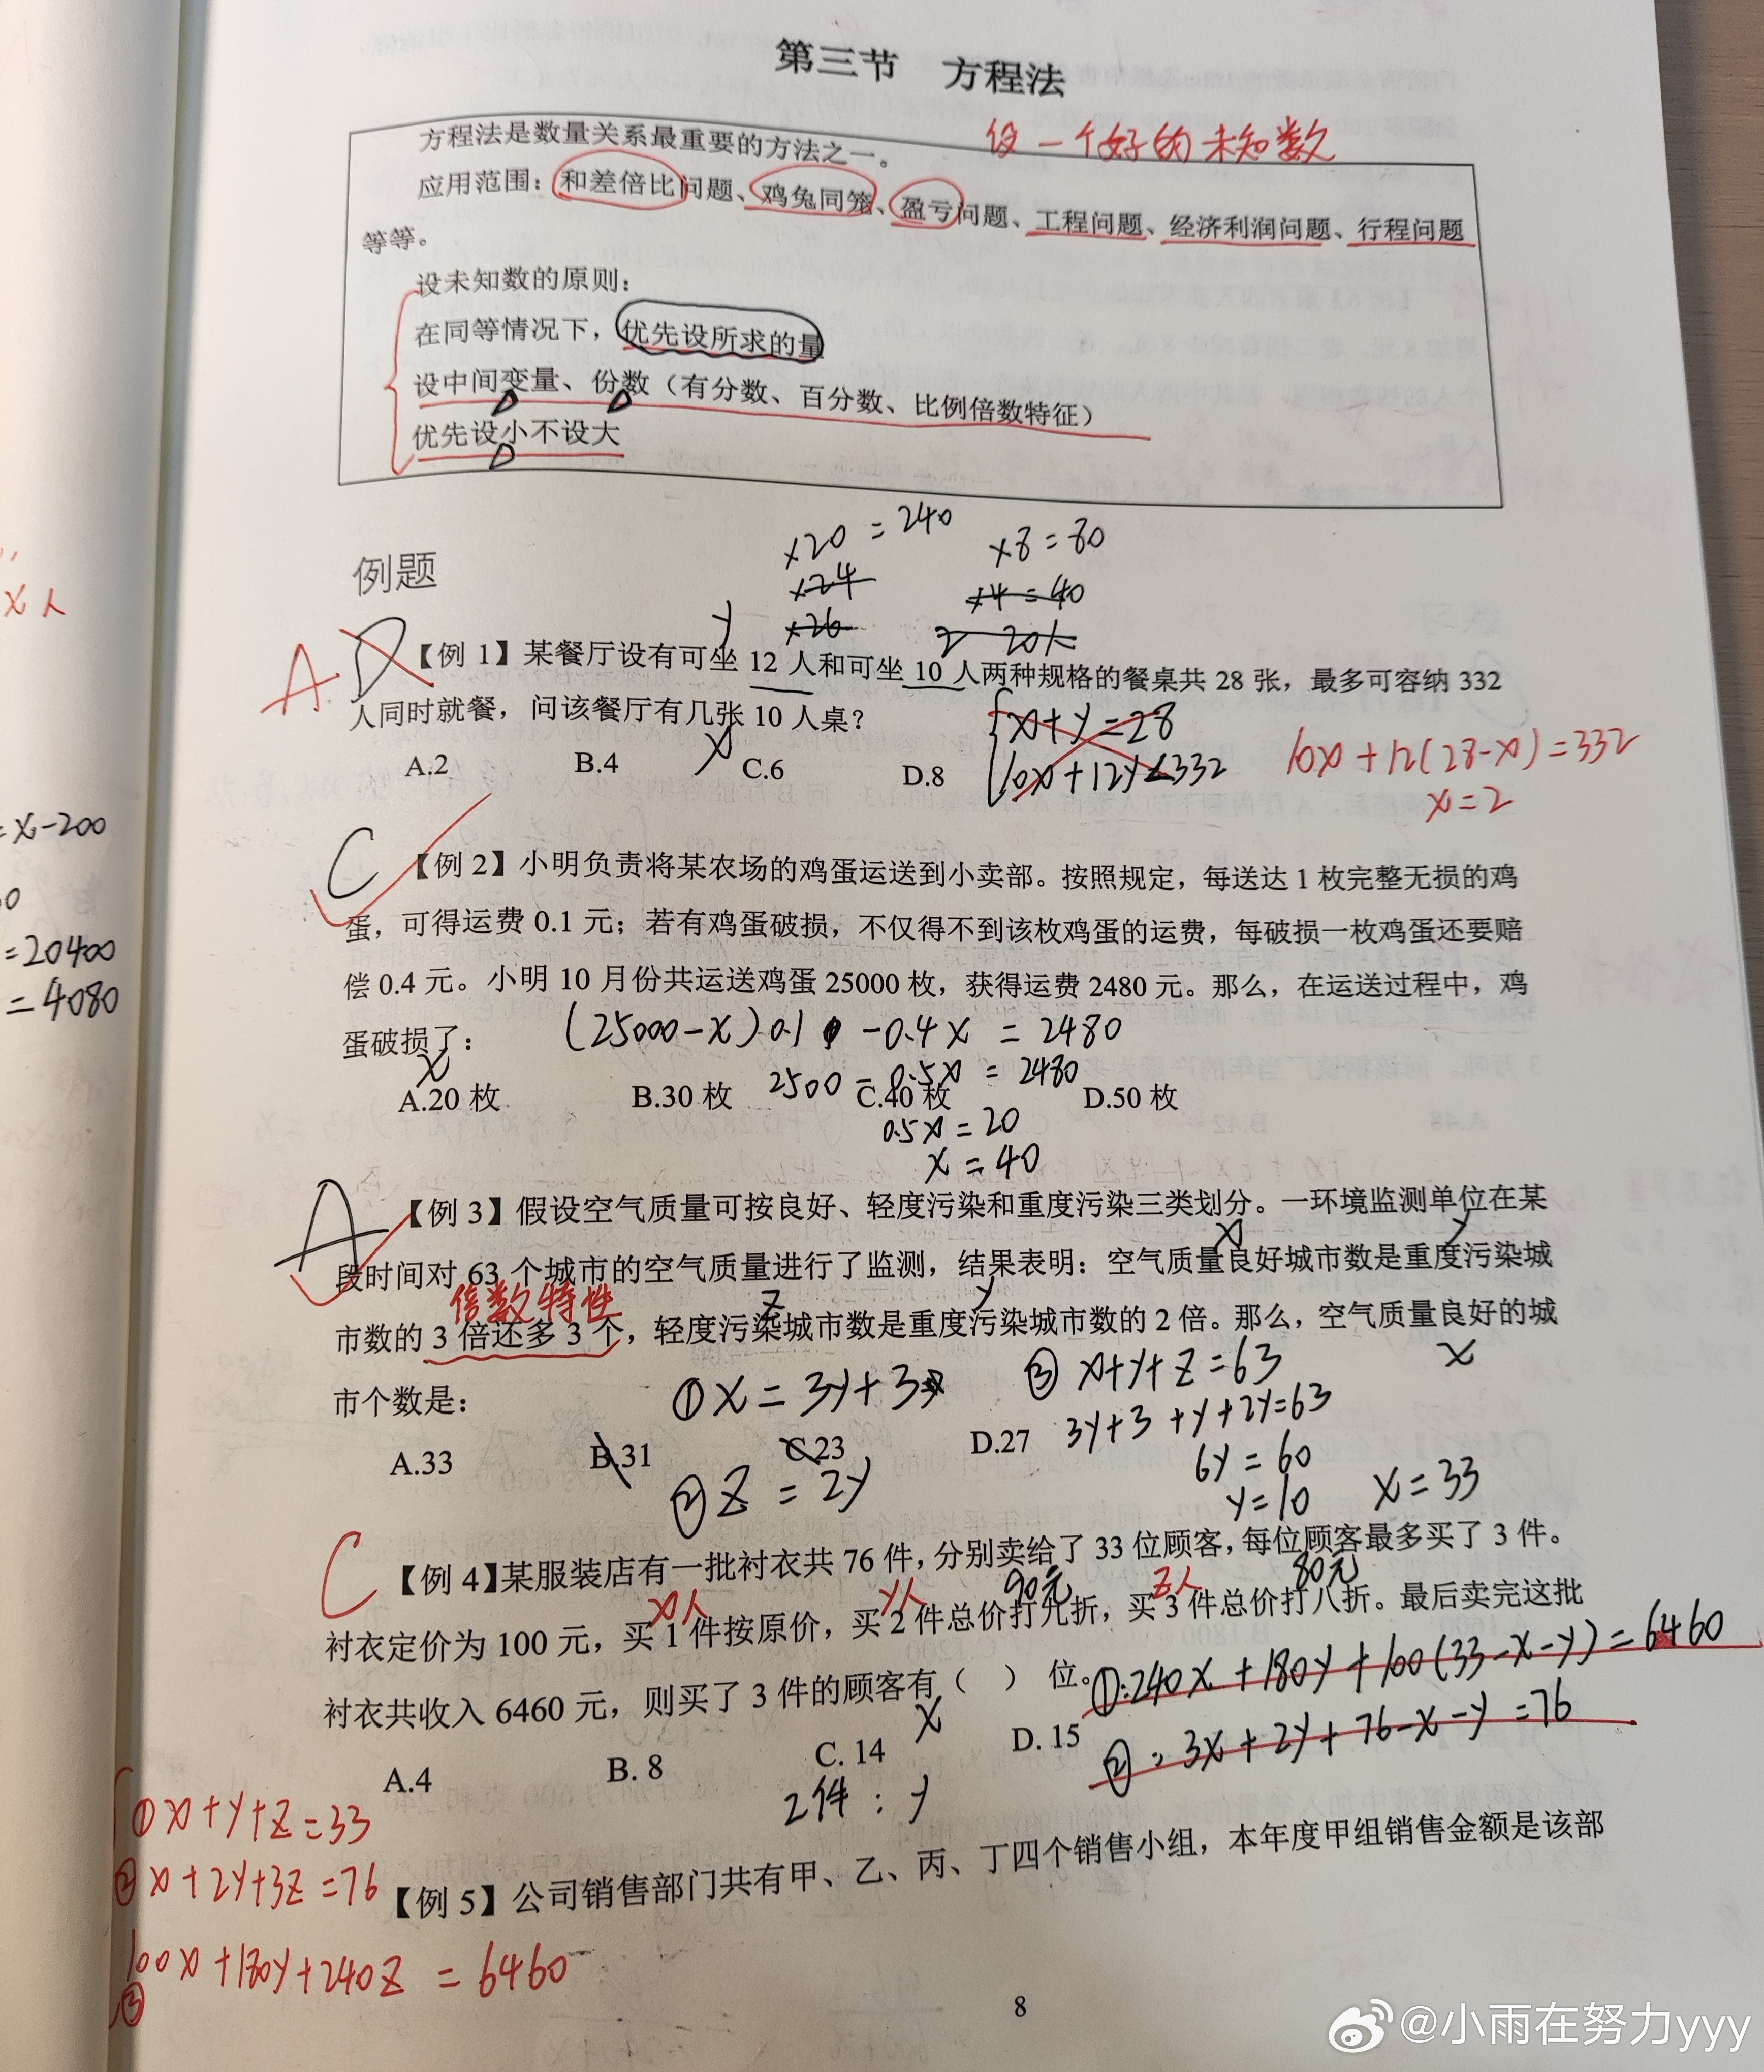 第三节 方程法
设一个好的未知数
方程法是数量关系最重要的方法之一。
应用范围：和差倍比问题、鸡兔同笼、盈亏问题、工程问题、经济利润问题、行程问题
等等。
设未知数的原则：
在同等情况下，优先设所求的量
设中间变量、份数（有分数、百分数、比例倍数特征）
优先设小不设大
×20=240 ×8=80
例题
×24 ×4=40
×26 2 20人
x人
y
A. D
【例 1】某餐厅设有可坐 12 人和可坐 10 人两种规格的餐桌共 28 张，最多可容纳 332
人同时就餐，问该餐厅有几张 10 人桌？
x
A.2 B.4 C.6 D.8
x+y=28
10x+12y≤332
10x+12(28-x)=332
x=2
=x-200
=20400
=4080
C
【例 2】小明负责将某农场的鸡蛋运送到小卖部。按照规定，每送达 1 枚完整无损的鸡
蛋，可得运费 0.1 元；若有鸡蛋破损，不仅得不到该枚鸡蛋的运费，每破损一枚鸡蛋还要赔
偿 0.4 元。小明 10 月份共运送鸡蛋 25000 枚，获得运费 2480 元。那么，在运送过程中，鸡
蛋破损了：
x
(25000-x)0.1 -0.4x = 2480
A.20 枚 B.30 枚 C.40 枚 D.50 枚
2500-0.5x = 2480
0.5x=20
x=40
A
【例 3】假设空气质量可按良好、轻度污染和重度污染三类划分。一环境监测单位在某
x y
段时间对 63 个城市的空气质量进行了监测，结果表明：空气质量良好城市数是重度污染城
倍数特性 z y
市数的 3 倍还多 3 个，轻度污染城市数是重度污染城市数的 2 倍。那么，空气质量良好的城
x
市个数是：
①x=3y+3
③x+y+z=63
3y+3+y+2y=63
A.33 B.31 C.23 D.27
②z=2y
6y=60
y=10 x=33
C
【例 4】某服装店有一批衬衣共 76 件，分别卖给了 33 位顾客，每位顾客最多买了 3 件。
x人 y人 90元 z人 80元
衬衣定价为 100 元，买 1 件按原价，买 2 件总价打九折，买 3 件总价打八折。最后卖完这批
衬衣共收入 6460 元，则买了 3 件的顾客有（ ）位。
x
①:240x+180y+100(33-x-y)=6460
②:3x+2y+76-x-y=76
A.4 B. 8 C. 14 D. 15
2件：y
①x+y+z=33
②x+2y+3z=76
③100x+180y+240z=6460
【例 5】公司销售部门共有甲、乙、丙、丁四个销售小组，本年度甲组销售金额是该部
8
@小雨在努力yyy